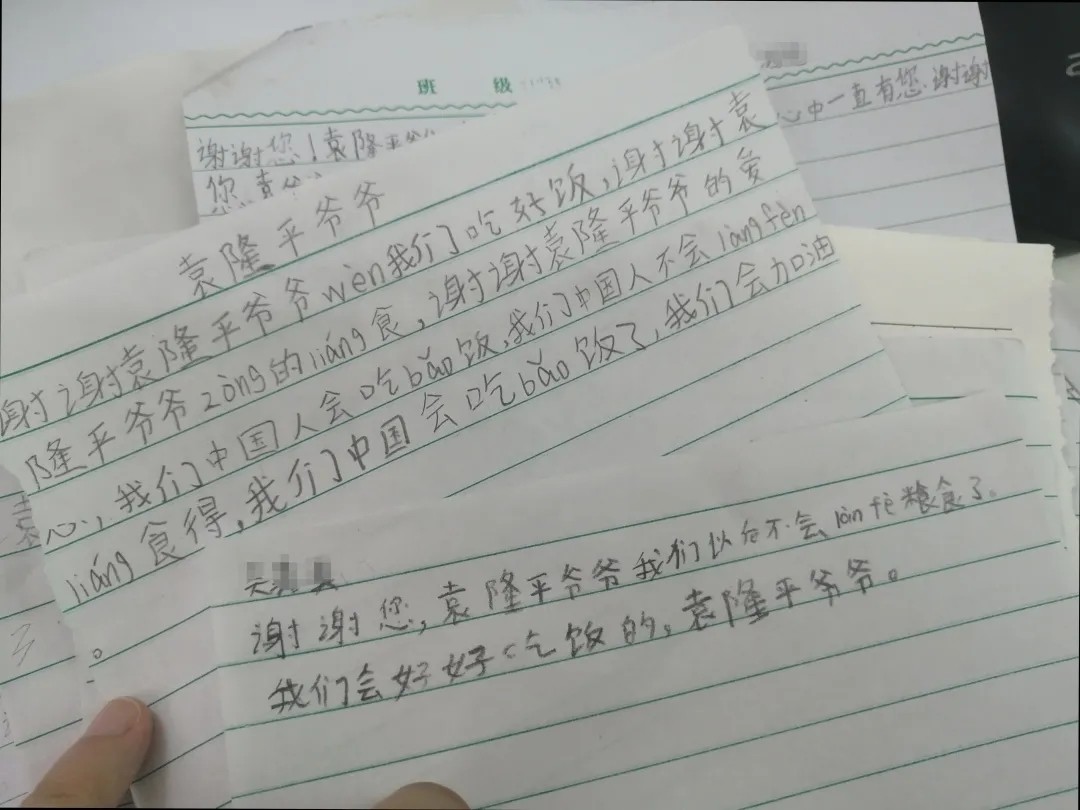 班 级
谢谢您！袁隆平爷
您
心中一直有您.谢谢
袁隆平爷爷
谢谢袁隆平爷爷wèn我们吃好饭,谢谢袁
隆平爷爷zòng的liáng食,谢谢袁隆平爷爷的爱
心,我们中国人会吃bǎo饭,我们中国人不会làngfèn
liáng食得,我们中国会吃bǎo饭了,我们会加油
。
谢谢您,袁隆平爷爷我们以后不会làn fè粮食了。
我们会好好吃饭的。袁隆平爷爷。